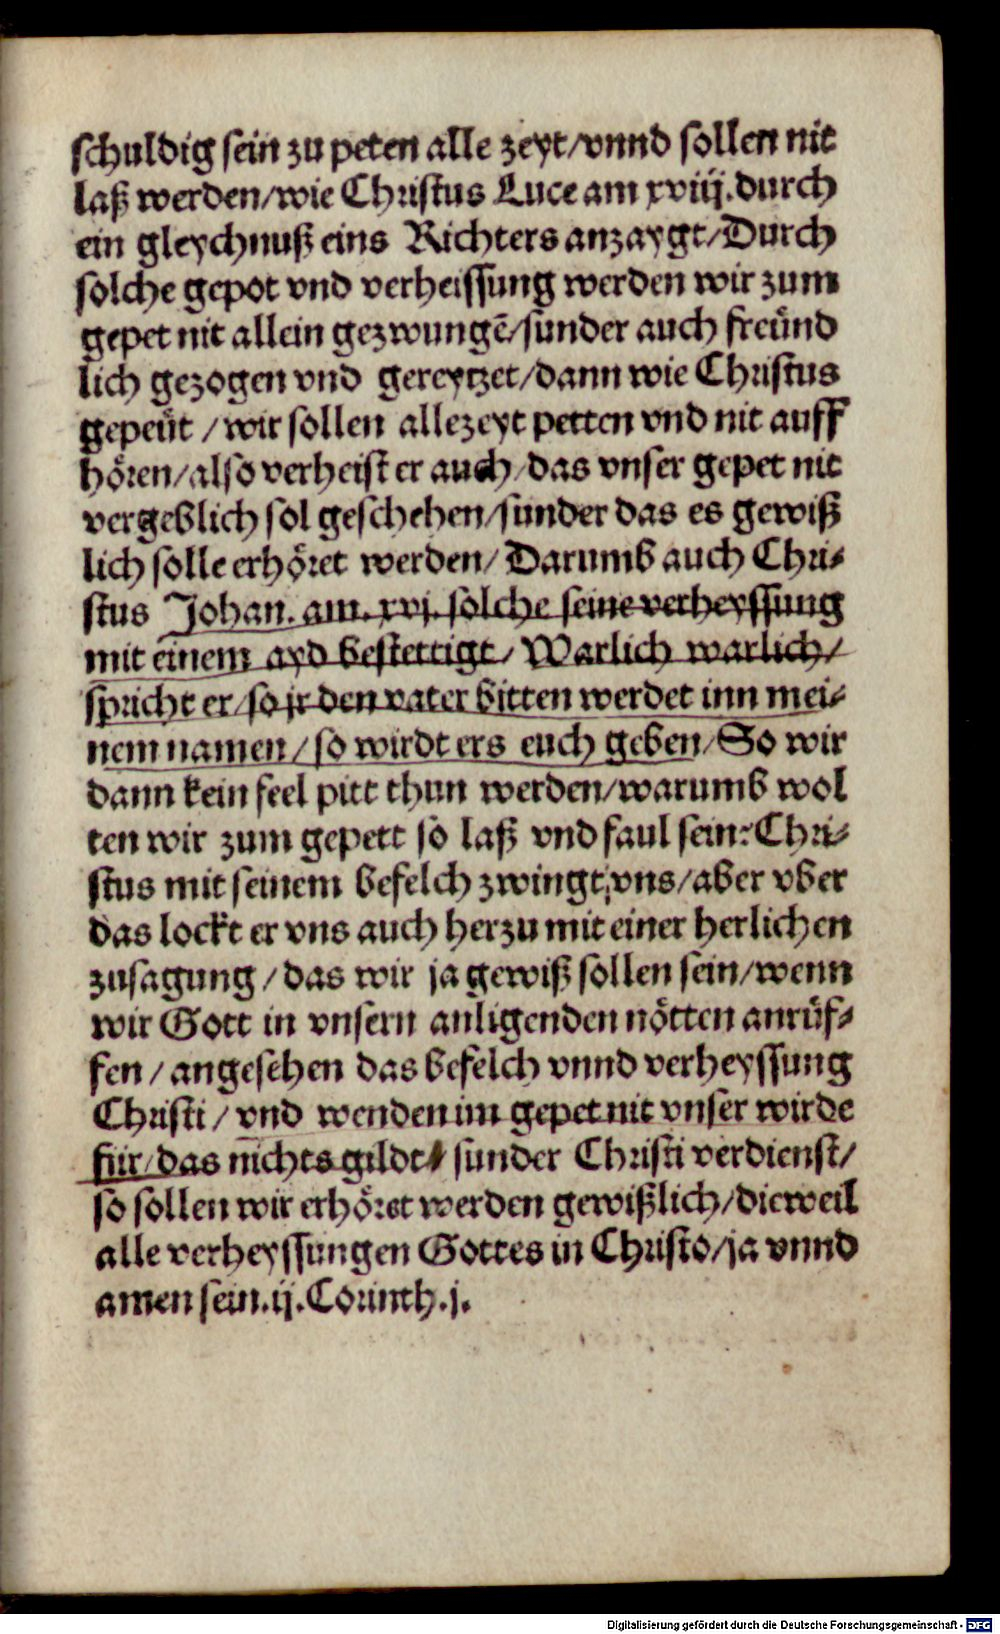 schuldig sein zu peten alle zeyt/vnnd sollen nit
laß werden/wie Christus Luce am xviij.durch
ein gleychnuß eins Richters anzaygt/Durch
solche gepot vnd verheissung werden wir zum
gepet nit allein gezwungẽ/sunder auch freünd
lich gezogen vnd gereytzet/dann wie Christus
gepeüt/wir sollen allezeyt petten vnd nit auff
hören/also verheist er auch/das vnser gepet nit
vergeblich sol geschehen/sunder das es gewiß
lich solle erhöret werden/Darumb auch Chri⸗
stus Johan. am. xvj. solche seine verheyssung
mit einem ayd bestettigt/Warlich warlich/
spricht er/so jr den vater bitten werdet inn mei⸗
nem namen/so wirdt ers euch geben/So wir
dann kein feel pitt thun werden/warumb wol
ten wir zum gepett so laß vnd faul sein? Chri⸗
stus mit seinem befelch zwingt vns/aber vber
das lockt er vns auch herzu mit einer herlichen
zusagung/das wir ja gewiß sollen sein/wenn
wir Gott in vnsern anligenden nötten anrüf⸗
fen/angesehen das befelch vnnd verheyssung
Christi/vnd wenden im gepet nit vnser wirde
für/das nichts gildt/sunder Christi verdienst/
so sollen wir erhöret werden gewißlich/dieweil
alle verheyssungen Gottes in Christo/ja vnnd
amen sein.ij.Corinth.j.
Digitalisierung gefördert durch die Deutsche Forschungsgemeinschaft - DFG